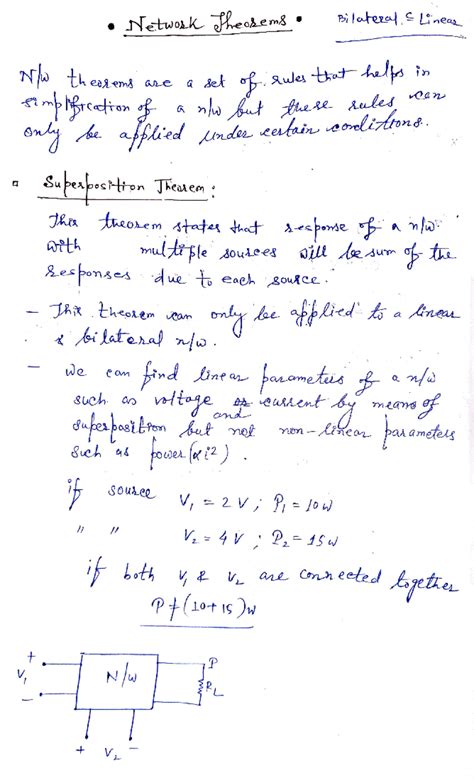 • Network Theorems •
Bilateral & Linear
N/w theorems are a set of rules that helps in
simplification of a n/w but these rules can
only be applied under certain conditions.
Superposition Theorem:
This theorem states that response of a n/w
with multiple sources will be sum of the
responses due to each source.
– This theorem can only be applied to a linear
& bilateral n/w.
– we can find linear parameters of a n/w
such as voltage and current by means of
superposition but not non-linear parameters
such as power (∝i²).
if source V₁ = 2V ; P₁ = 10w
" " V₂ = 4V ; P₂ = 15w
if both V₁ & V₂ are connected together
P ≠ (10+15)w
+
V₁
–
N/w
P
R_L
+ V₂ –